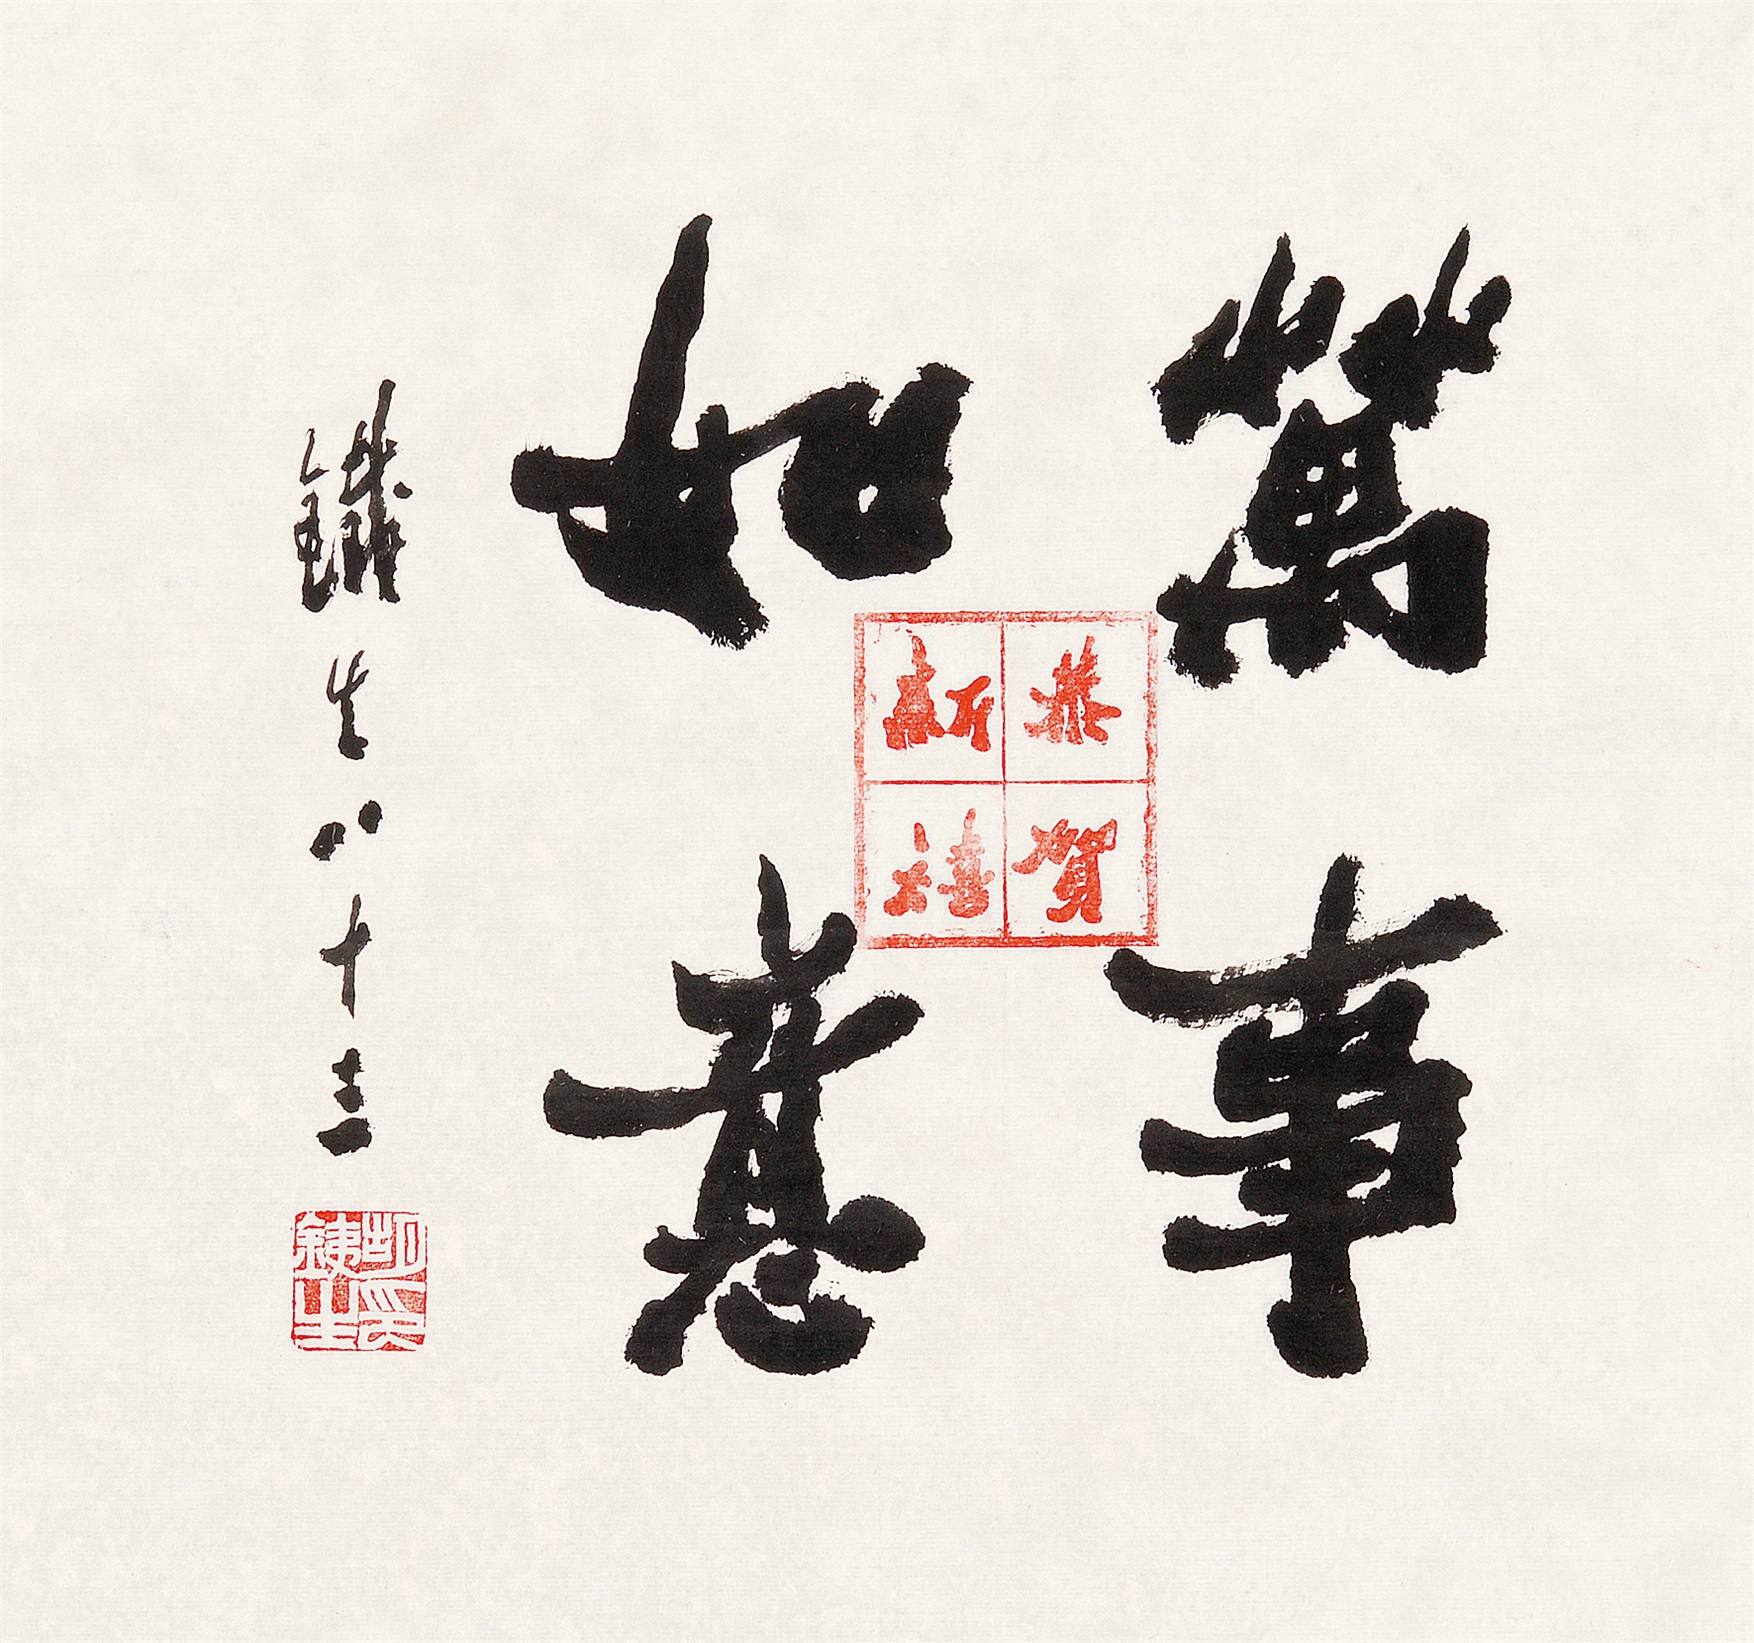 萬事
如意
恭賀
新禧
鐵生八十三
胡印
銕生